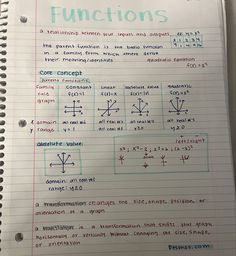 Functions
a relationship between two inputs and outputs
the parent function is the basic function
in a family from which others derive
their meaning/identities
quadratic function
f(x)=x²
Core concept
parent functions
family constant linear absolute value quadratic
rule f(x)=1 f(x)=x f(x)=|x| f(x)=x²
graph
domain all real #s all real #s all real #s all real #s
range y=1 all real #s y≥0 y≥0
absolute value
domain: all real #s
range: y≥0
a transformation changes the size, shape, position, or
orientation of a graph
a translation is a transformation that shifts the graph
horizontally or vertically without changing the size, shape,
or orientation